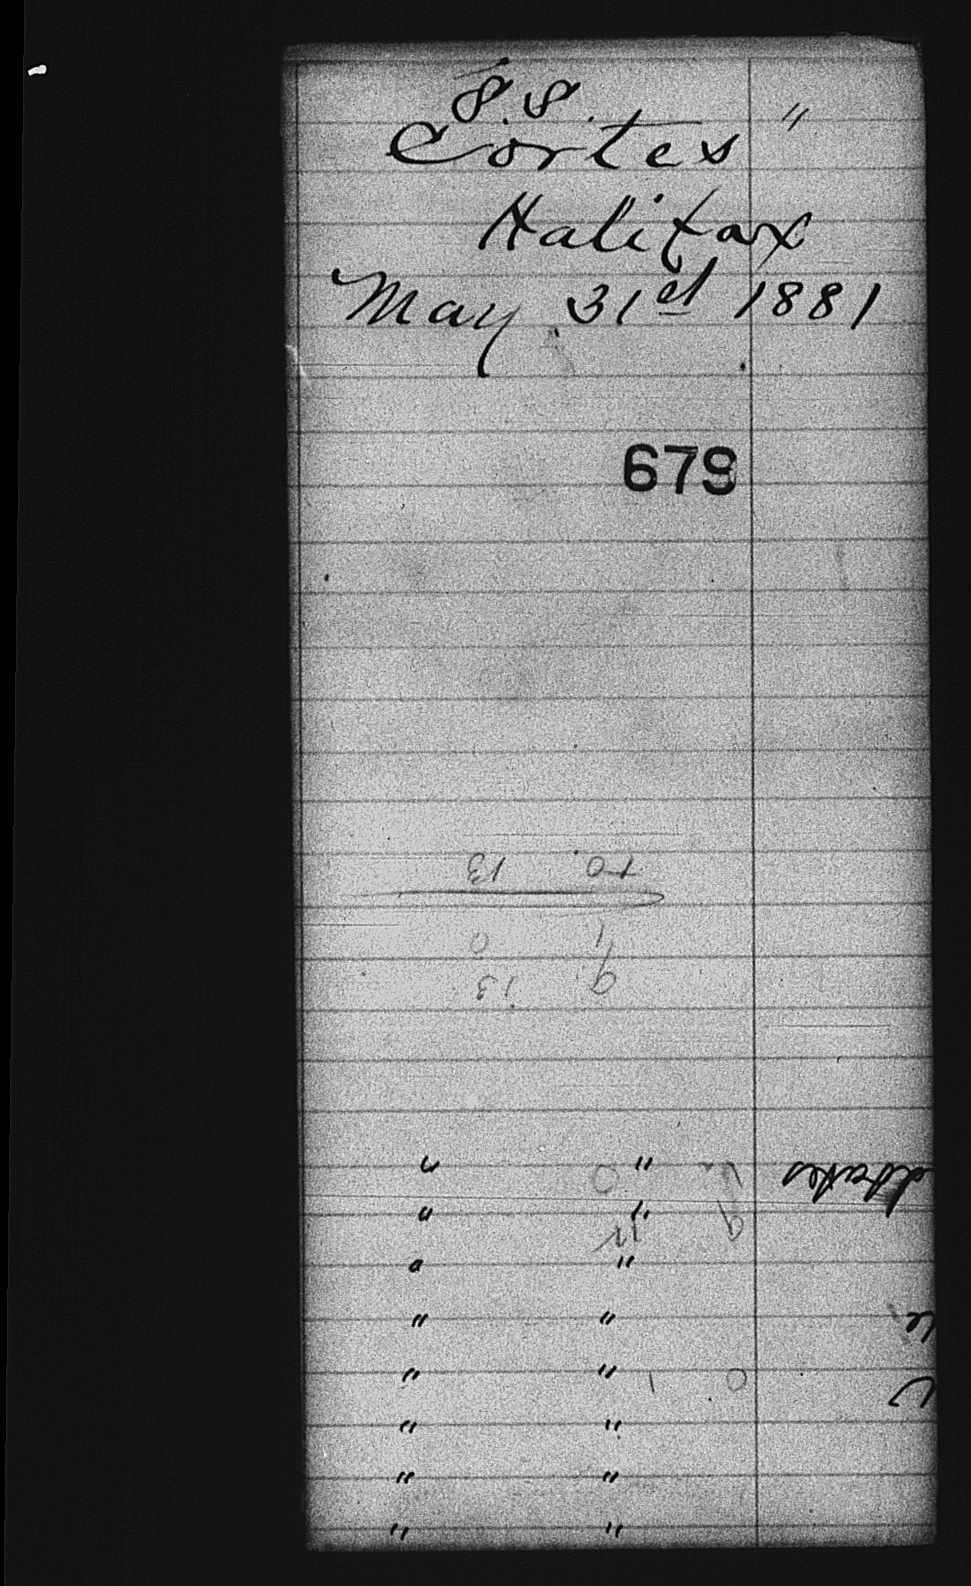 S.S.
Cortes "
Halifax
May 31st 1881
679
10 13
1 0
9 13
" "
" "
" "
" "
" "
" "
" "
" "